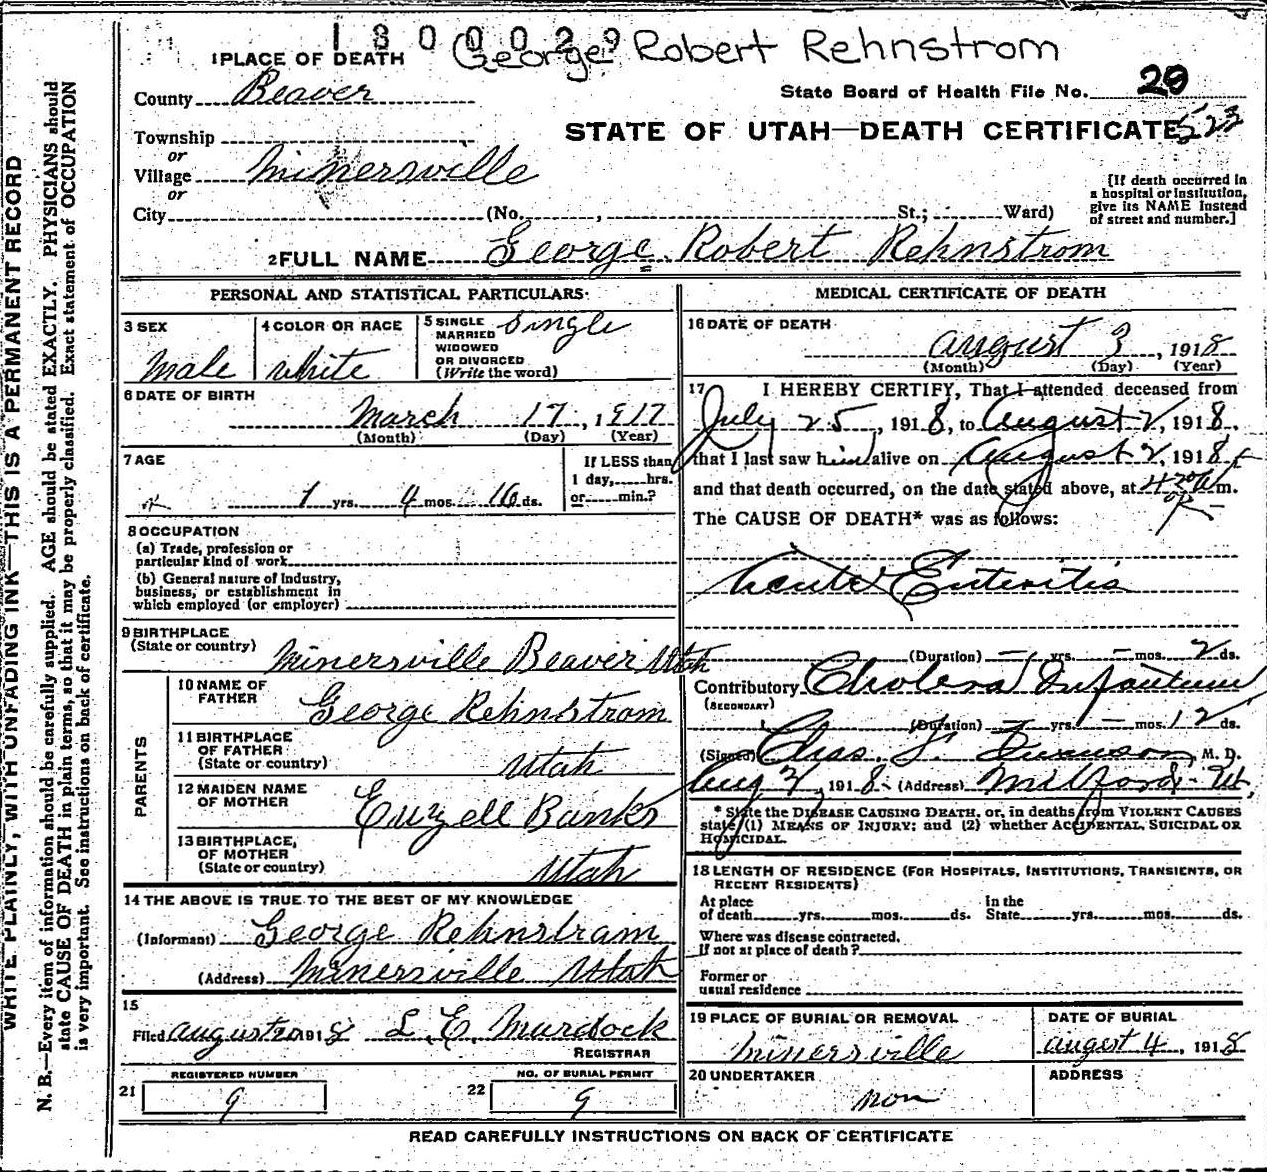 1800029 George Robert Rehnstrom
1 PLACE OF DEATH
County Beaver
State Board of Health File No. 29
Township
STATE OF UTAH—DEATH CERTIFICATE 523
or
Village Minersville
or
City (No. , St.; Ward)
[If death occurred in a hospital or institution, give its NAME instead of street and number.]
2 FULL NAME George Robert Rehnstrom
PERSONAL AND STATISTICAL PARTICULARS
3 SEX
Male
4 COLOR OR RACE
White
5 SINGLE
MARRIED
WIDOWED
OR DIVORCED
(Write the word)
Single
6 DATE OF BIRTH
March 17, 1917
(Month) (Day) (Year)
7 AGE
1 yrs. 4 mos. 16 ds.
If LESS than
1 day, hrs.
or min.?
8 OCCUPATION
(a) Trade, profession or
particular kind of work
(b) General nature of Industry,
business, or establishment in
which employed (or employer)
9 BIRTHPLACE
(State or country) Minersville Beaver Utah
PARENTS
10 NAME OF
FATHER George Rehnstrom
11 BIRTHPLACE
OF FATHER
(State or country) Utah
12 MAIDEN NAME
OF MOTHER Euzell Banks
13 BIRTHPLACE,
OF MOTHER
(State or country) Utah
14 THE ABOVE IS TRUE TO THE BEST OF MY KNOWLEDGE
(Informant) George Rehnstram
(Address) Minersville Utah
15
Filed August 1918 L. E. Murdock
REGISTRAR
REGISTERED NUMBER
21 9
NO. OF BURIAL PERMIT
22 9
MEDICAL CERTIFICATE OF DEATH
16 DATE OF DEATH
August 3, 1918
(Month) (Day) (Year)
17 I HEREBY CERTIFY, That I attended deceased from
July 25, 1918, to August 2, 1918,
that I last saw him alive on August 2, 1918,
and that death occurred, on the date stated above, at 4:30 A m.
The CAUSE OF DEATH* was as follows:
Acute Enteritis
(Duration) — yrs. — mos. 2 ds.
Contributory Cholera Infantum
(SECONDARY)
(Duration) — yrs. — mos. 12 ds.
(Signed) Chas. Swanson, M. D.
Aug 3, 1918 (Address) Milford Ut,
* State the DISEASE CAUSING DEATH, or, in deaths from VIOLENT CAUSES
state (1) MEANS OF INJURY; and (2) whether ACCIDENTAL, SUICIDAL OR
HOMICIDAL.
18 LENGTH OF RESIDENCE (FOR HOSPITALS, INSTITUTIONS, TRANSIENTS, OR
RECENT RESIDENTS)
At place
of death yrs. mos. ds.
In the
State yrs. mos. ds.
Where was disease contracted,
If not at place of death?
Former or
usual residence
19 PLACE OF BURIAL OR REMOVAL
Minersville
DATE OF BURIAL
August 4, 1918
20 UNDERTAKER
Non
ADDRESS
READ CAREFULLY INSTRUCTIONS ON BACK OF CERTIFICATE
WRITE PLAINLY, WITH UNFADING INK—THIS IS A PERMANENT RECORD
N. B.—Every item of information should be carefully supplied. AGE should be stated EXACTLY. PHYSICIANS should
state CAUSE OF DEATH in plain terms, so that it may be properly classified. Exact statement of OCCUPATION
is very important. See instructions on back of certificate.